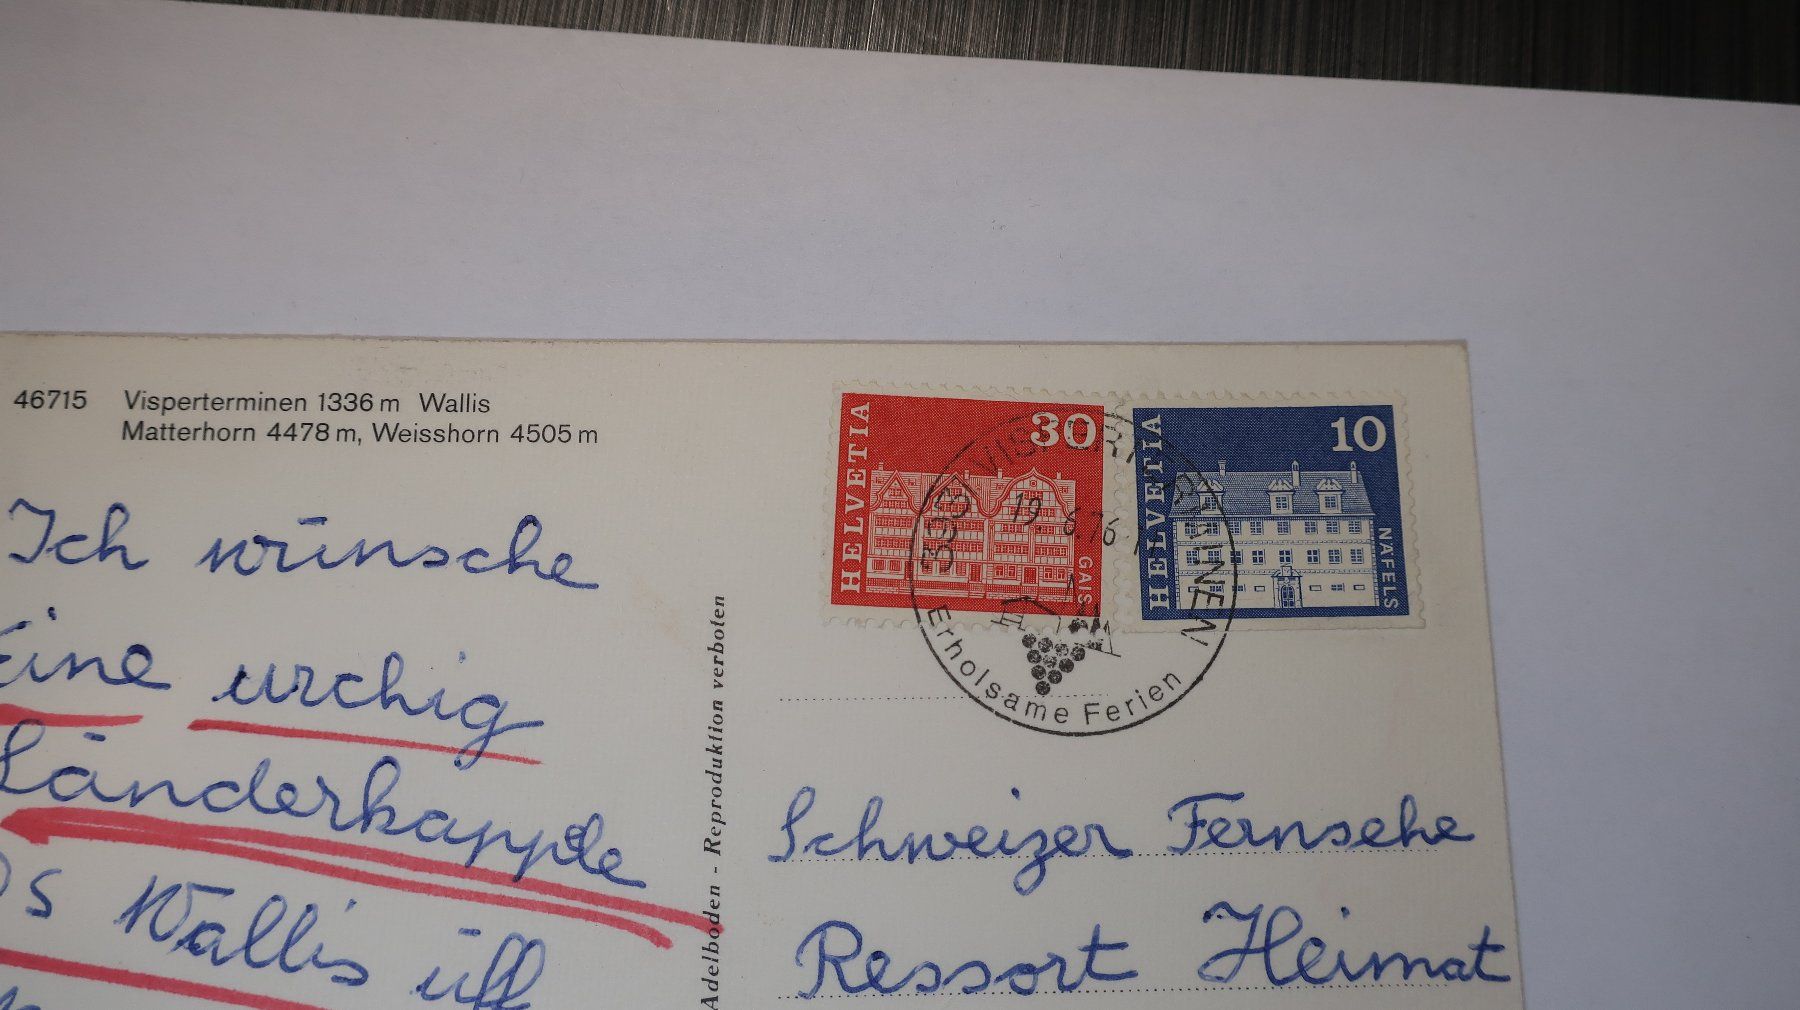 46715 Visperterminen 1336 m Wallis
Matterhorn 4478 m, Weisshorn 4505 m
Ich wünsche
Eine urchig
Länderkapple
Wallis üff
Adelboden - Reproduktion verboten
HELVETIA 30 GAIS
HELVETIA 10 NÄFELS
VISPERTERMINEN
19. 6.76
Erholsame Ferien
Schweizer Fernsehe
Ressort Heimat